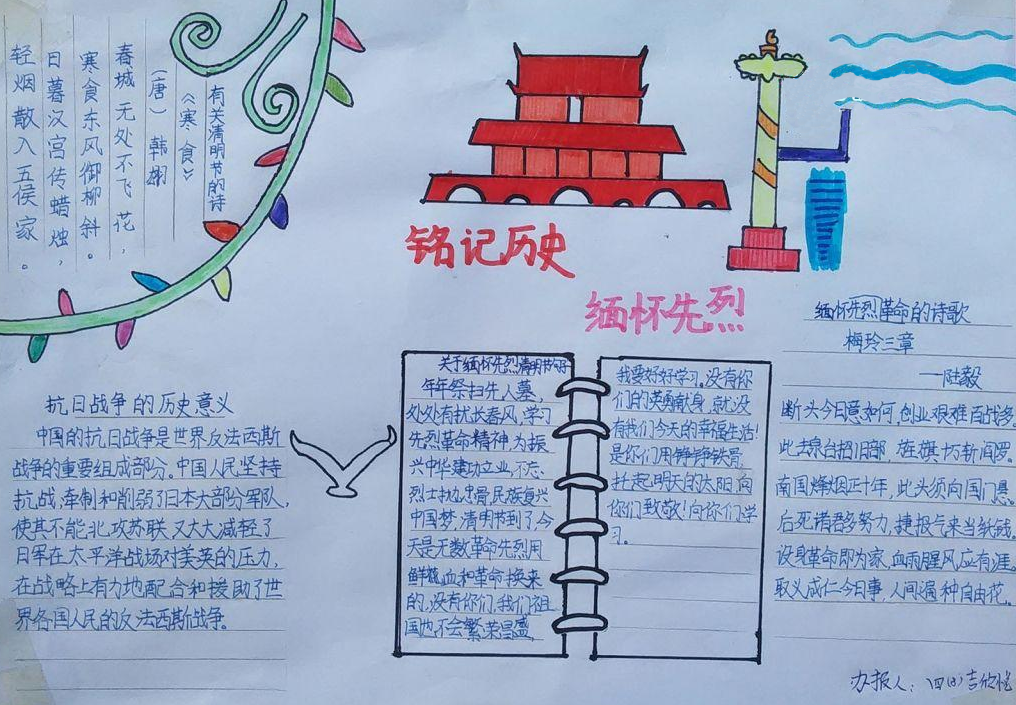 有关清明节的诗
《寒食》
(唐) 韩翃
春城无处不飞花，
寒食东风御柳斜。
日暮汉宫传蜡烛，
轻烟散入五侯家。
铭记历史
缅怀先烈
抗日战争的历史意义
中国的抗日战争是世界反法西斯
战争的重要组成部分。中国人民坚持
抗战，牵制和削弱了日本大部分军队，
使其不能北攻苏联又大大减轻了
日军在太平洋战场对美英的压力，
在战略上有力地配合和援助了世
界各国人民的反法西斯战争。
关于缅怀先烈清明节句子
年年祭扫先人墓，
处处有扰长春风，学习
先烈革命精神为振
兴中华建功立业，不忘
烈士忠骨，民族复兴
中国梦，清明节到了今
天是无数革命先烈用
鲜血和革命换来
的，没有你们，我们祖
国也不会繁荣昌盛，
我要好好学习，没有你
们的英勇献身，就没
有我们今天的幸福生活！
是你们用铮铮铁骨
托起明天的太阳向
你们致敬！向你们学
习。
缅怀先烈革命的诗歌
梅玲三章
一陆毅
断头今日意如何，创业艰难百战多。
此去泉台招旧部，旌旗十万斩阎罗。
南国烽烟正十年，此头须向国门悬。
后死诸君多努力，捷报飞来当纸钱。
设身革命即为家，血雨腥风应有涯。
取义成仁今日事，人间遍种自由花。
办报人：四